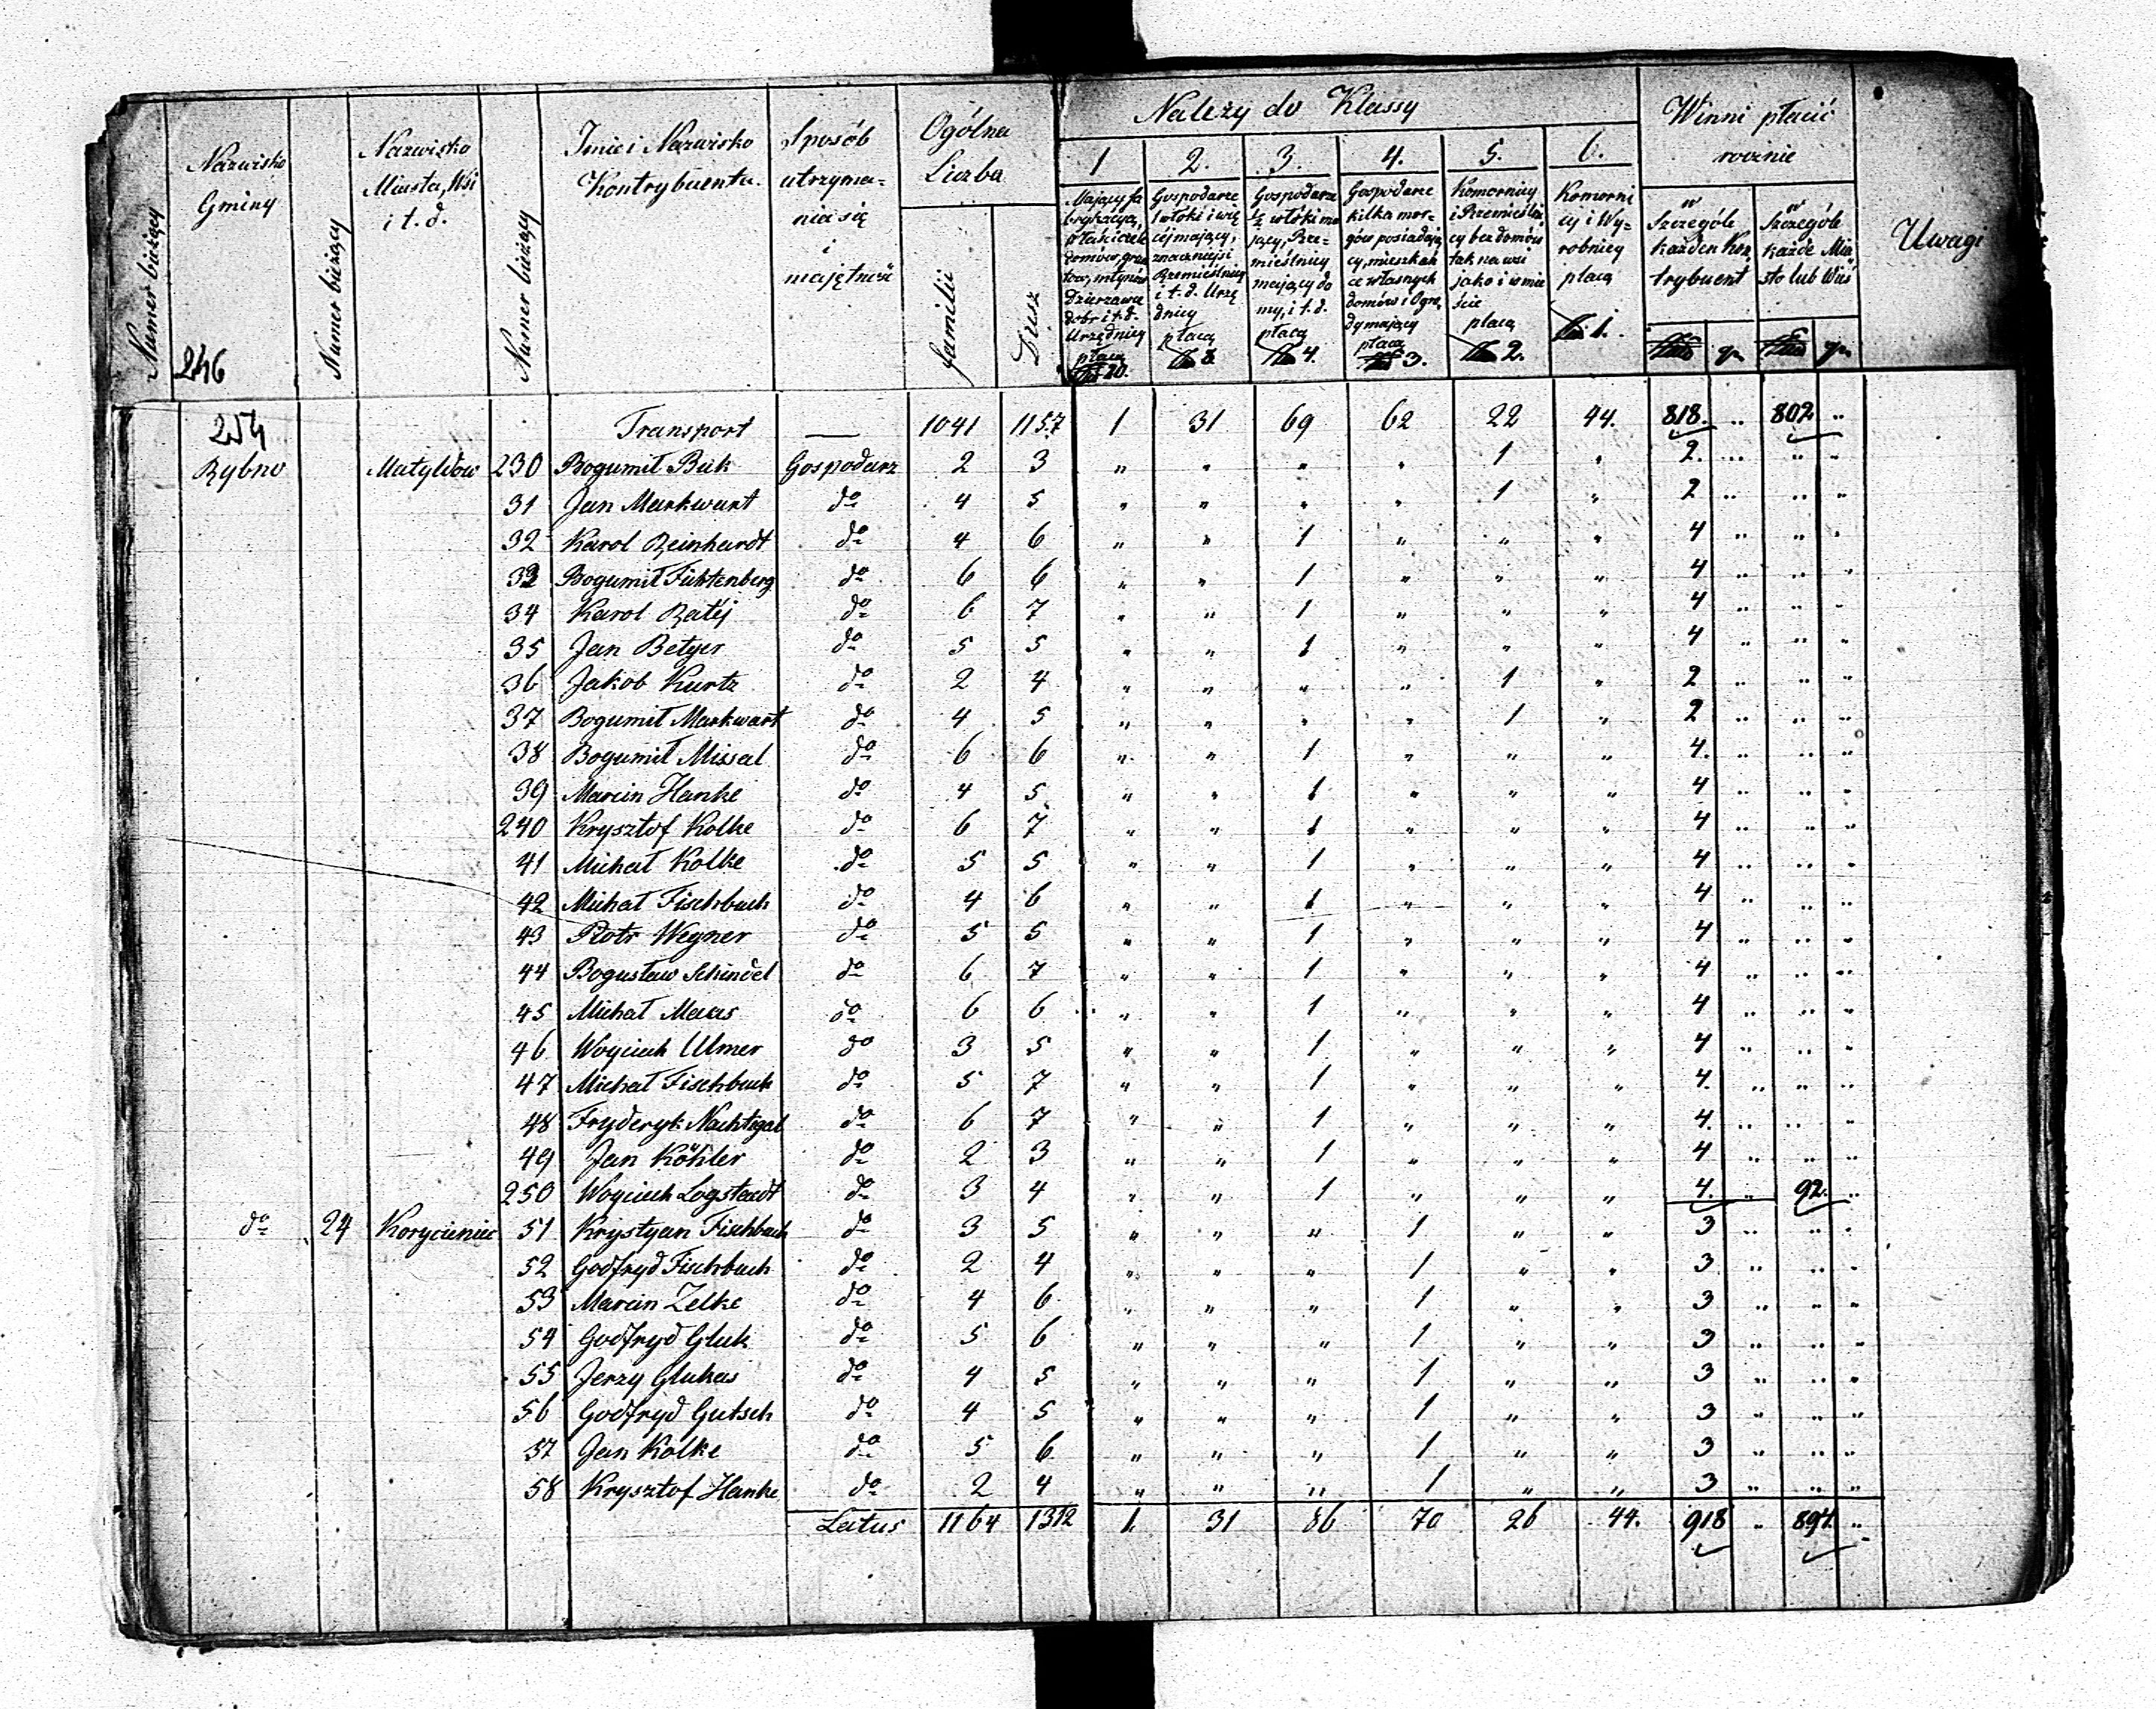 Numer bieżący
Nazwisko
Gminy
246
Numer bieżący
Nazwisko
Miasta, Wsi
i t. d.
Numer bieżący
Imie i Nazwisko
Kontrybuenta.
Sposób
utrzyma=
nia się
i
majętność
Ogólna
Liczba
familii
Dusz
Należy do Klassy
1
Mający fa
brykacyą,
właściciele
domów, grun
tów, młynów
Dzierżawce
dobr i t. d.
Urzędnicy
płacą
20.
2.
Gospodarze
1 włóki i wię
céj mający,
znaczniejsi
Rzemieślnicy
i t. d. Urzę
dnicy
płacą
8
3.
Gospodarze
½ włóki ma
jący, Rze=
mieślnicy
mający do
my, i t. d.
płacą
4.
4.
Gospodarze
kilka mor=
gów posiadają
cy, mieszkań
ce własnych
domów i Ogro
dy mający
płacą
3.
5.
Komornicy
i Rzemieślni
cy bez domów
tak na wsi
jako i w mie
ście
płacą
2.
6.
Komorni
cy i Wy=
robnicy
płacą
1.
Winni płacić
rocznie
w
Szczególe
każden Kon
trybuent
gr
w
Szczególe
każde Mia
sto lub Wieś
gr
Uwagi
254 Transport — 1041 1157 1 31 69 62 22 44. 818. .. 802 ..
Rybno Matyldow 230 Bogumił Buk Gospodarz 2 3 " " " " 1 " 2. .. .. ..
31 Jan Markwart do 4 5 " " " " 1 " 2 .. .. ..
32 Karol Reinhardt do 4 6 " " 1 " " " 4 .. .. ..
33 Bogumił Fürstenberg do 6 6 " " 1 " " " 4 .. .. ..
34 Karol Ratéj do 6 7 " " 1 " " " 4 .. .. ..
35 Jan Betyer do 5 5 " " 1 " " " 4 .. .. ..
36 Jakob Kurtz do 2 4 " " " " 1 " 2 .. .. ..
37 Bogumił Markwart do 4 5 " " " " 1 " 2 .. .. ..
38 Bogumił Missal do 6 6 " " 1 " " " 4. .. .. ..
39 Marcin Hanke do 4 5 " " 1 " " " 4 .. .. ..
240 Krysztof Kolke do 6 7 " " 1 " " " 4 .. .. ..
41 Michał Kolke do 5 5 " " 1 " " " 4 .. .. ..
42 Michał Fischbach do 4 6 " " 1 " " " 4 .. .. ..
43 Piotr Wegner do 5 5 " " 1 " " " 4 .. .. ..
44 Bogusław Schindel do 6 7 " " 1 " " " 4 .. .. ..
45 Michał Maas do 6 6 " " 1 " " " 4 .. .. ..
46 Woyciech Ulmer do 3 5 " " 1 " " " 4 .. .. ..
47 Michał Fischbach do 5 7 " " 1 " " " 4. .. .. ..
48 Fryderyk Nachtegal do 6 7 " " 1 " " " 4. .. .. ..
49 Jan Köhler do 2 3 " " 1 " " " 4 .. .. ..
250 Woyciech Logstaedt do 3 4 " " 1 " " " 4. .. 92. ..
do 24 Korycieniec 51 Krystyan Fischbach do 3 5 " " " 1 " " 3 .. .. ..
52 Godfryd Fischbach do 2 4 " " " 1 " " 3 .. .. ..
53 Marcin Zelke do 4 6 " " " 1 " " 3 .. .. ..
54 Godfryd Gluk do 5 6 " " " 1 " " 3 .. .. ..
55 Jerzy Glukas do 4 5 " " " 1 " " 3 .. .. ..
56 Godfryd Gutsch do 4 5 " " " 1 " " 3 .. .. ..
57 Jan Kolke do 5 6 " " " 1 " " 3 .. .. ..
58 Krysztof Hanke do 2 4 " " " 1 " " 3 .. .. ..
Latus 1164 1312 1. 31 86 70 26 44. 918 .. 894 ..